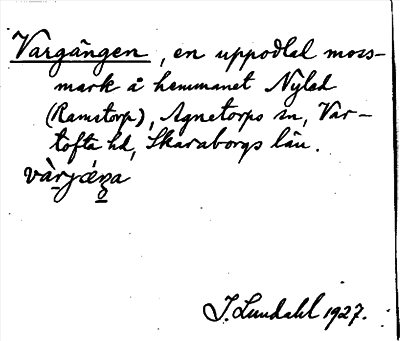 Vargängen, en uppodlad moss-
mark å hemmanet Nyled
(Ramstorp), Agnetorps sn, Var-
tofta hd, Skaraborgs län.
I. Lundahl 1927.